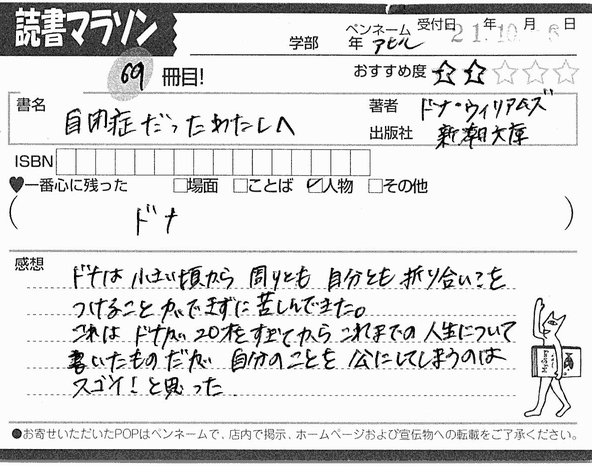 読書マラソン
学部 年 ペンネーム アヒル 受付日 21年10月 6日
69 冊目! おすすめ度 ☆☆☆☆☆
書名 自閉症だったわたしへ
著者 ドナ・ウィリアムズ
出版社 新潮文庫
ISBN
♥一番心に残った □場面 □ことば ☑人物 □その他
( ドナ )
感想
ドナは 小さい頃から 周りとも 自分とも 折り合いを
つけることができずに苦しんできた。
これは ドナが 20才をすぎてから これまでの 人生について
書いたものだが 自分のことを 公にしてしまうのは
スゴイ!と思った
●お寄せいただいたPOPはペンネームで、店内で掲示、ホームページおよび宣伝物への転載をご了承ください。